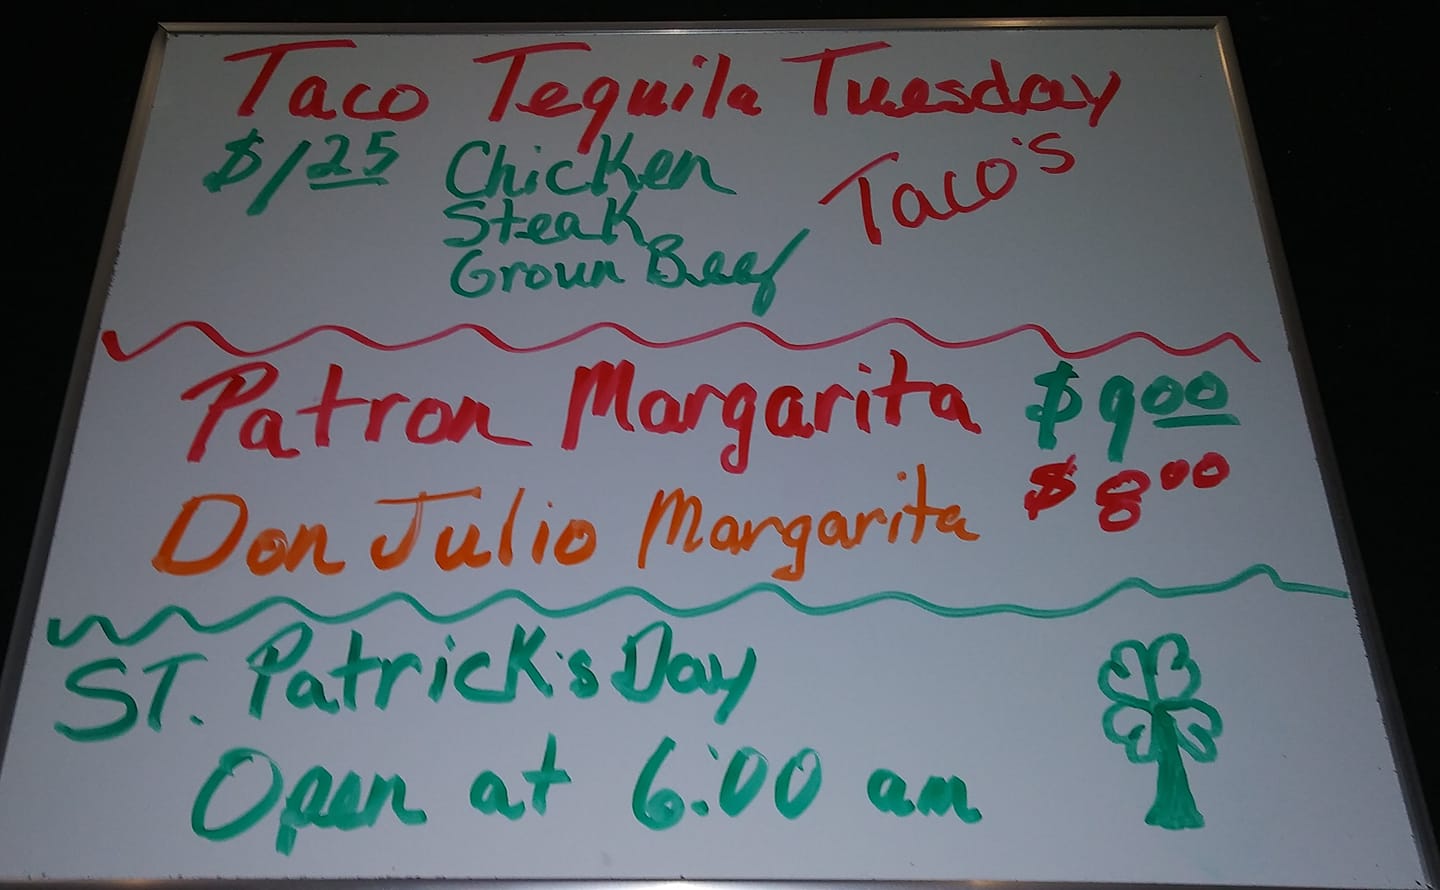 Taco Tequila Tuesday
$1.25 Chicken Taco's
Steak
Groun Beef
Patron Margarita $9.00
Don Julio Margarita $8.00
ST. Patrick's Day
Open at 6:00 am